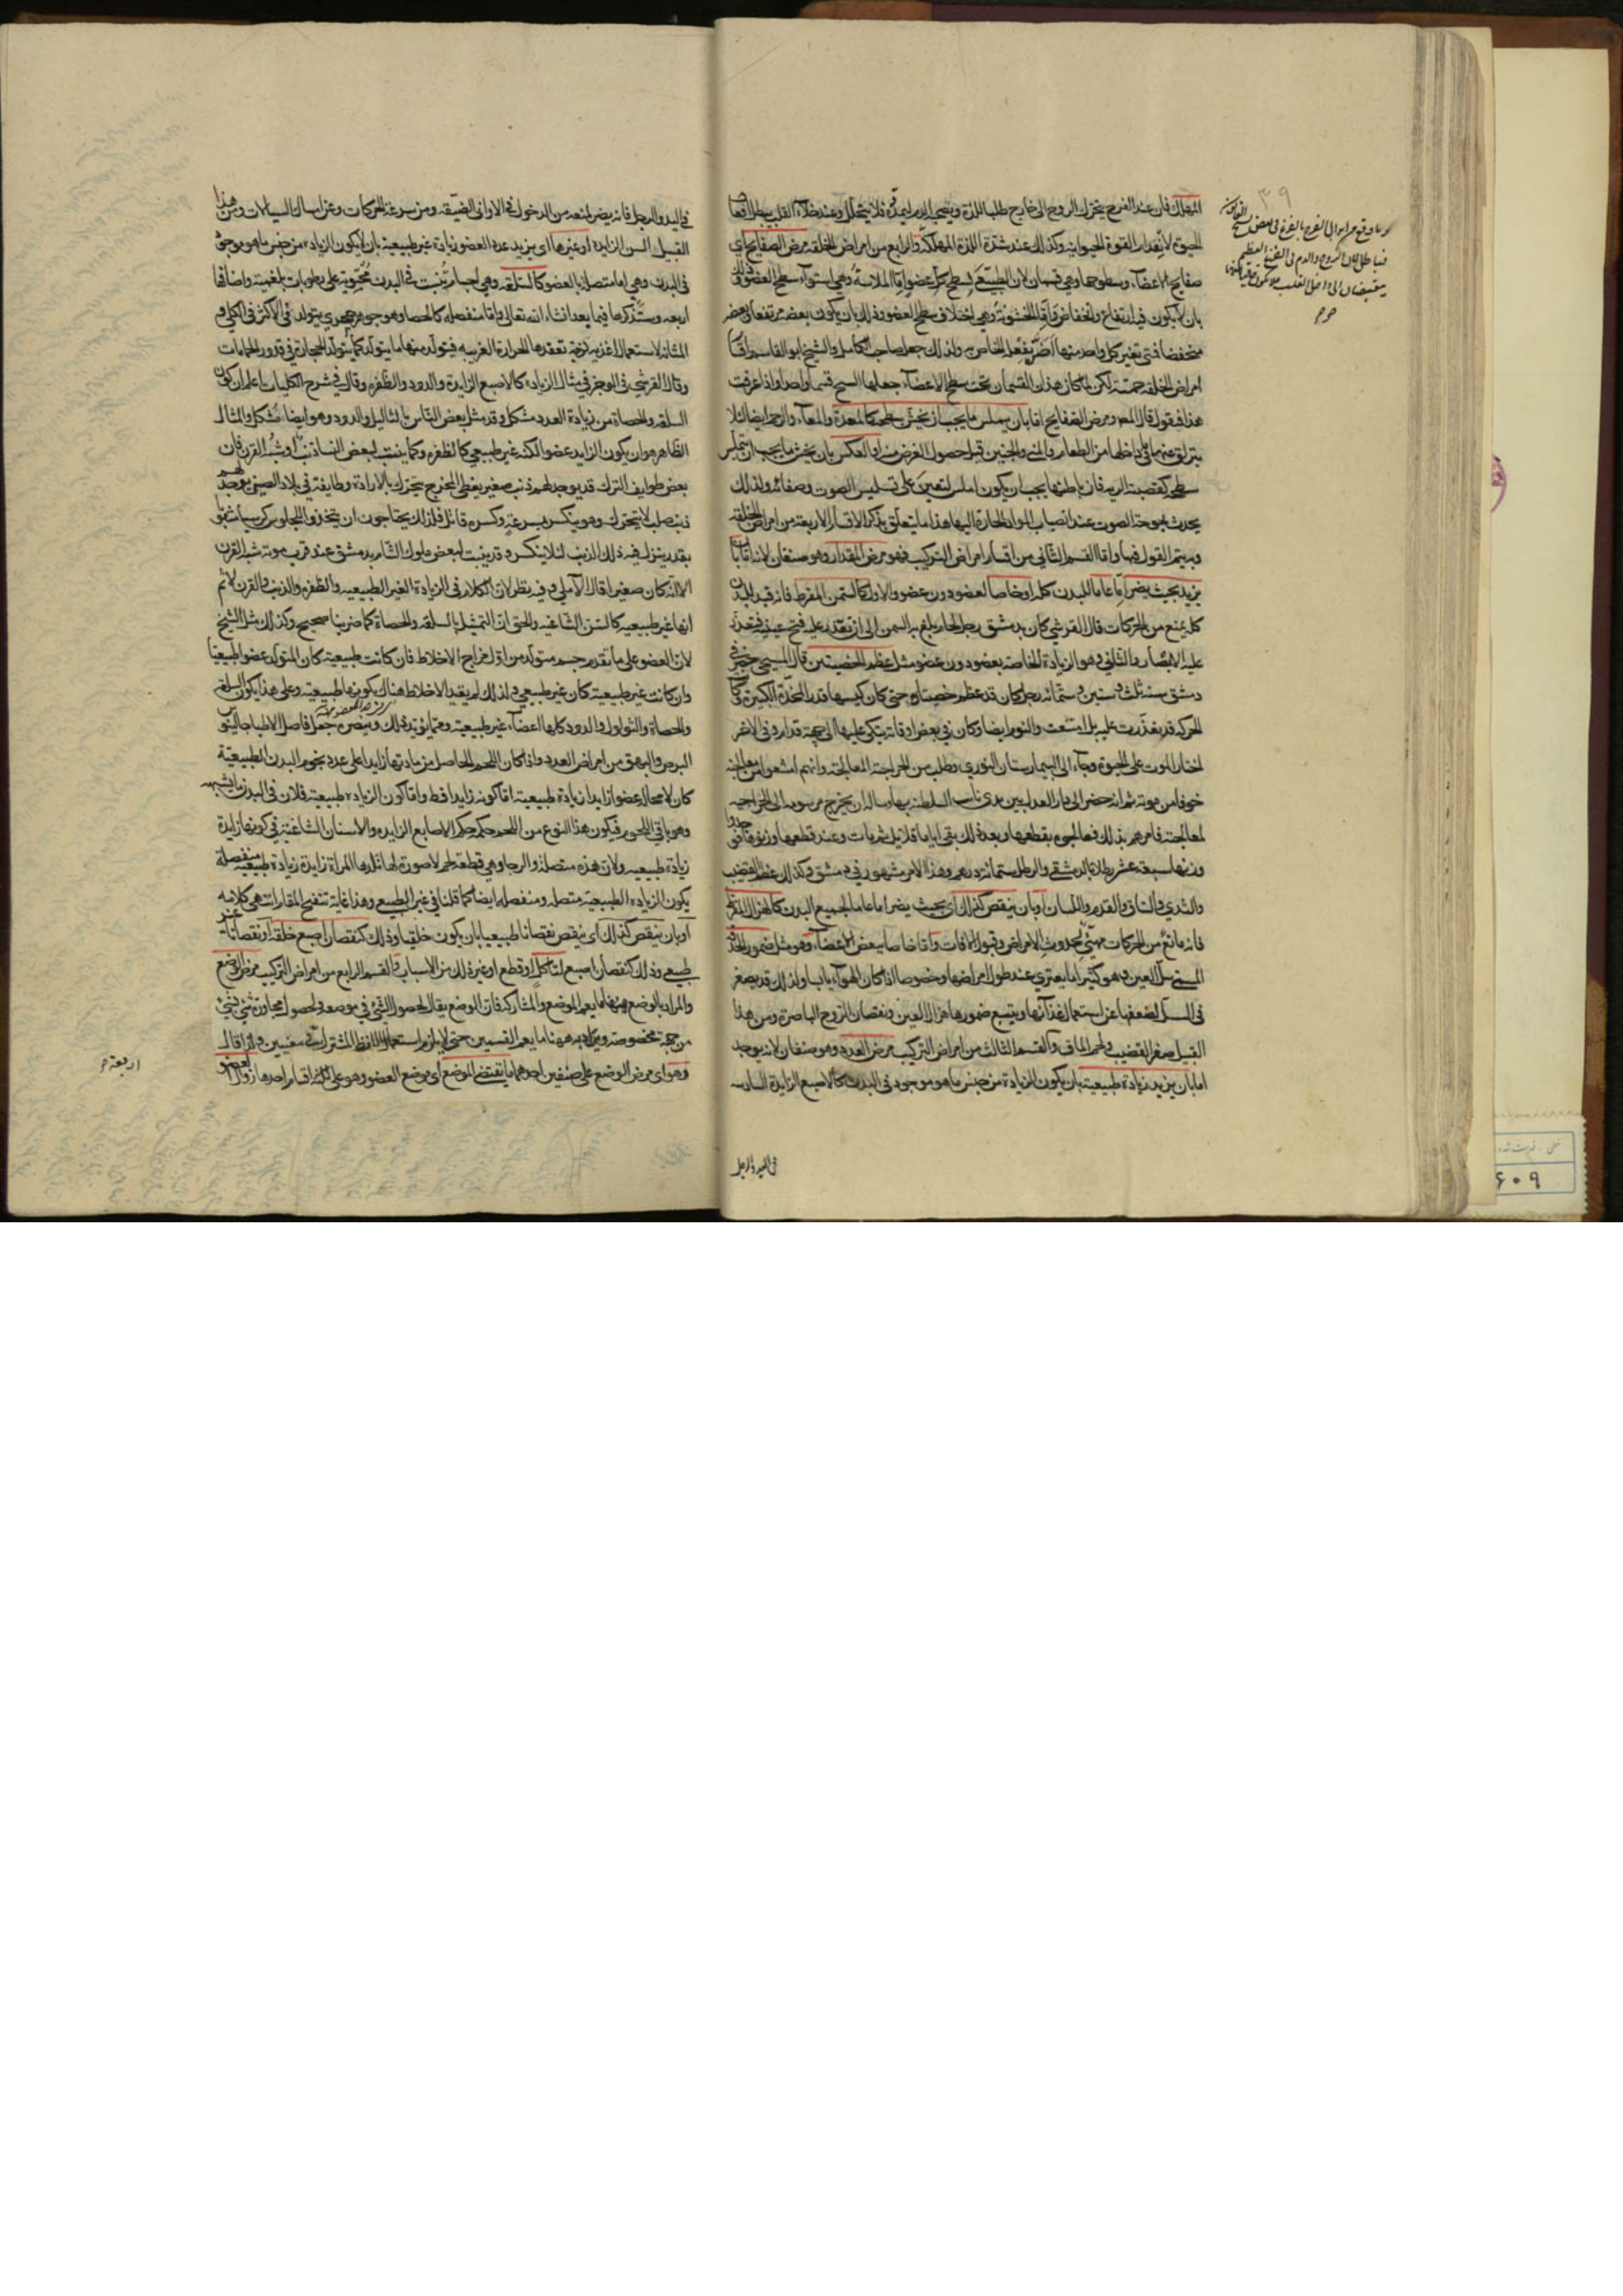 المهلك فان عند الفرح يتحرك الروح الى خارج طلبا للذة ويصحبه الدم ليمده فلا يتحلل وعند خلاء القلب يبطل افعال
الحيوة لانعدام القوة الحيوانية وكذلك عند شدة اللذة المهلكة والرابع من امراض الخلقة مرض الصفايح اي
صفايح الاعضاء وسطوحها وهي قسمان لان الطبيعي لسطح كل عضو اما الملاسة وهي استواء سطح العضو وذلك
بان لا يكون فيه ارتفاع وانخفاض واما الخشونة وهي اختلاف سطح العضو وذلك بان يكون بعضه مرتفعا وبعضه
منخفضا فمتى تغير كل واحد منها اضر بفعله الخاص به ولذلك جعل صاحب الكامل والشيخ ابو القاسم اقسام
امراض الخلقة خمسة لكن لما كان هذان القسمان تحت سطح الاعضاء جعلها المسيحي قسما واحدا واذا عرفت
هذا فنقول قال المص ومرض الصفايح اما بان يملس ما يجب ان يخشن سطحه كالمعدة والمعاء والرحم ايضا لئلا
ينزلق عنهما ما في داخلها من الطعام والمني والجنين قبل حصول الغرض منه او العكس بان يخشن ما يجب ان يتملس
سطحه كقصبة الرية فان باطنها يجب ان يكون املس لتعين على تسليس الصوت وصفائه ولذلك
يحدث بحوحة الصوت عند انصباب المواد الحارة اليها هذا ما يتعلق بذكر الاقسام الاربعة من امراض الخلقة
وبه يتم القول فيها واما القسم الثاني من اقسام امراض التركيب فهو مرض المقدار وهو صنفان لانه اما بان
يزيد بحيث يضر اما عاما للبدن كله او خاصا لعضو دون عضو والاول كالسمن المفرط فانه قيد البدن
كله يمنع من الحركات قال القرشي كان بدمشق رجل نجار بلغ به السمن الى ان تعذر عليه فتح عينيه فتعذر
عليه الابصار والثاني وهو الزيادة الخاصة بعضو دون عضو مثل عظم الخصيتين قال المسيحي حضر في
دمشق سنة ثلث وستين وستمائة رجل كان قد عظم خصيتاه حتى كان كيسهما قدر المخدة الكبيرة وكان
الحركة قد تعذرت عليه بل امتنعت والنوم ايضا وكان في بعض اوقاته يتكي عليها الى جهة قدام وفي الاخر
اختار الموت على الحيوة وجاء الى البيمارستان النوري وطلب من الجراحية المعالجة وانهم امتنعوا من معالجته
خوفا من موته ثم انه حضر الى دار العدل بين يدي نايب السلطنة بها وساله ان يخرج مرسومه الى الجراحية
لمعالجته فامرهم بذلك فعالجوه بقطعها وبعد ذلك بقي اياما قلايل ثم مات وعند قطعها وزنوها فوجدوا
وزنها سبعة عشر رطلا بالدمشقي والرطل ستمائة درهم وهذا الامر مشهور في دمشق وكذلك عظم القضيب
والثدي والساق والقدم واللسان او بان ينقص كذلك اي بحيث يضر اما عاما لجميع البدن كالهزال المفرط
فانه مانع من الحركات مهيئ لحدوث الامراض وقبول الافات واما خاصا ببعض الاعضاء وهو مثل ضمور الحدقة
المسمى سل العين وهو كثيرا ما يعتري عند طول امراضها وخصوصا اذا كان الهواء يابسا ولذلك قد يصغر
في السل لضعفها عن استعمال غذائها ويتبع ضمورها هزال العين ونقصان الروح الباصرة ومن هذا
القبيل صغر القضيب ولحم الماق والقسم الثالث من امراض التركيب مرض العدد وهو صنفان لانه يوجد
اما بان يزيد زيادة طبيعية بان يكون الزيادة من جنس ما هو موجود في البدن كالاصبع الزايدة السادسة
في اليد والرجل
٣٩
في اليد والرجل فانه يضر لمنعه من الدخول في الاواني الضيقة ومن سرعة الحركات وعن امساك السيالات ومن هذا
القبيل السن الزايدة او غيرها اي يزيد عدد العضو زيادة غير طبيعية بان لا يكون الزيادة من جنس ما هو موجود
في البدن وهي اما متصلة بالعضو كالسلقه وهي اجسام تنبت في البدن محتوية على رطوبات بلغمية واصنافها
اربعة وستذكرها فيما بعد انشاء الله تعالى واما منفصلة كالحصا وهو جوهر حجري يتولد في الاكثر في الكلى و
المثانة لاستعمال اغذية لزجة تعقدها الحرارة الغريبة فيتولد منها ما يتولد كما يتولد الحجارة في قدور الحمامات
وقال القرشي في الموجز في مثال الزيادة كالاصبع الزايدة والدود والظفره وقال في شرح الكليات باعلم ان كون
السلقه والحصاة من زيادة العدد مشكل وقد مثل بعض الناس بالثاليل والدود وهو ايضا مشكل والمثال
الظاهر هو ان يكون الزايد عضوا لكنه غير طبيعي كالظفره وكما ينبت لبعض الناس ذنب او شبه القرن فان
بعض طوايف الترك قد يوجد لهم ذنب صغير يغطي المخرج يتحرك بالارادة وطايفة في بلاد الصين يوجد لهم
ذنب صلب لا يتحرك وهو ينكسر بسرعة وكسره قاتل فلذلك يحتاجون ان يتخذوا للجلوس كراسيا مثقوبة
بقدر ينزل فيه ذلك الذنب لئلا ينكسر وقد ينبت لبعض ملوك الشام بدمشق عند قرب موته شبه القرن
الا انه كان صغيرا قال الآملي وفيه نظر لان الكلام في الزيادة الغير الطبيعية والظفره والذنب والقرن لا ثم
انها غير طبيعية كالسن الشاغية والحق ان التمثيل بالسلقه والحصاة كما ضربنا صحيح وكذلك مثل الشيخ
لان العضو على ما تقدم جسم متولد من اول مزاج الاخلاط فان كانت طبيعية كان المتولد عضوا طبيعيا
وان كانت غير طبيعية كان غير طبيعي ولذلك لم يقيد الاخلاط هناك بكونها طبيعية وعلى هذا يكون السلقه
والحصاة والثولول والدود كلها اعضاء غير طبيعية ومما يؤيد ذلك وينصره جعل فاضل الاطبا جالينوس
البرص والبهق من امراض العدد واذا كان اللحم الحاصل من مادتها زايدا على عدد لحوم البدن الطبيعية
كان لا محالة عضوا زايدا زيادة طبيعية اما كونه زايدا فظ واما كون الزيادة طبيعية فلان في البدن ما يشبهه
وهو باقي اللحوم فيكون هذا النوع من اللحم حكمه حكم الاصابع الزايدة والاسنان الشاغية في كونها زايدة
زيادة طبيعية ولان هذه متصلة والرجا وهي قطعة لحم لا صورة لها تلدها المراة زايدة زيادة طبيعية منفصلة
يكون الزيادة الطبيعية متصلة ومنفصلة ايضا كما قلنا في غير الطبيعي وهذا غاية تنقيح المقام انتهى كلامه
او بان ينقص كذلك اي ينقص نقصانا طبيعيا بان يكون خلقيا وذلك كنقصان اصبع خلقة او نقصانا غير
طبيعي وذلك كنقصان اصبع لتاكل او قطع او غير ذلك من الاسباب والقسم الرابع من امراض التركيب مرض الوضع
والمراد بالوضع ههنا ما يعم الموضع والمشاركة فان الوضع يقال لحصول الشئ في موضعه ولحصول مجاورة شئ لشئ
من جهة مخصوصة ويراد به ههنا ما يعم القسمين حتى لا يلزم استعمال اللفظ المشترك في معنيين ولذا قال
وهو اي مرض الوضع على صنفين احدهما ما يقتضي الموضع اي موضع العضو وهو على ثلثة اقسام احدها زوال العضو
اربعة